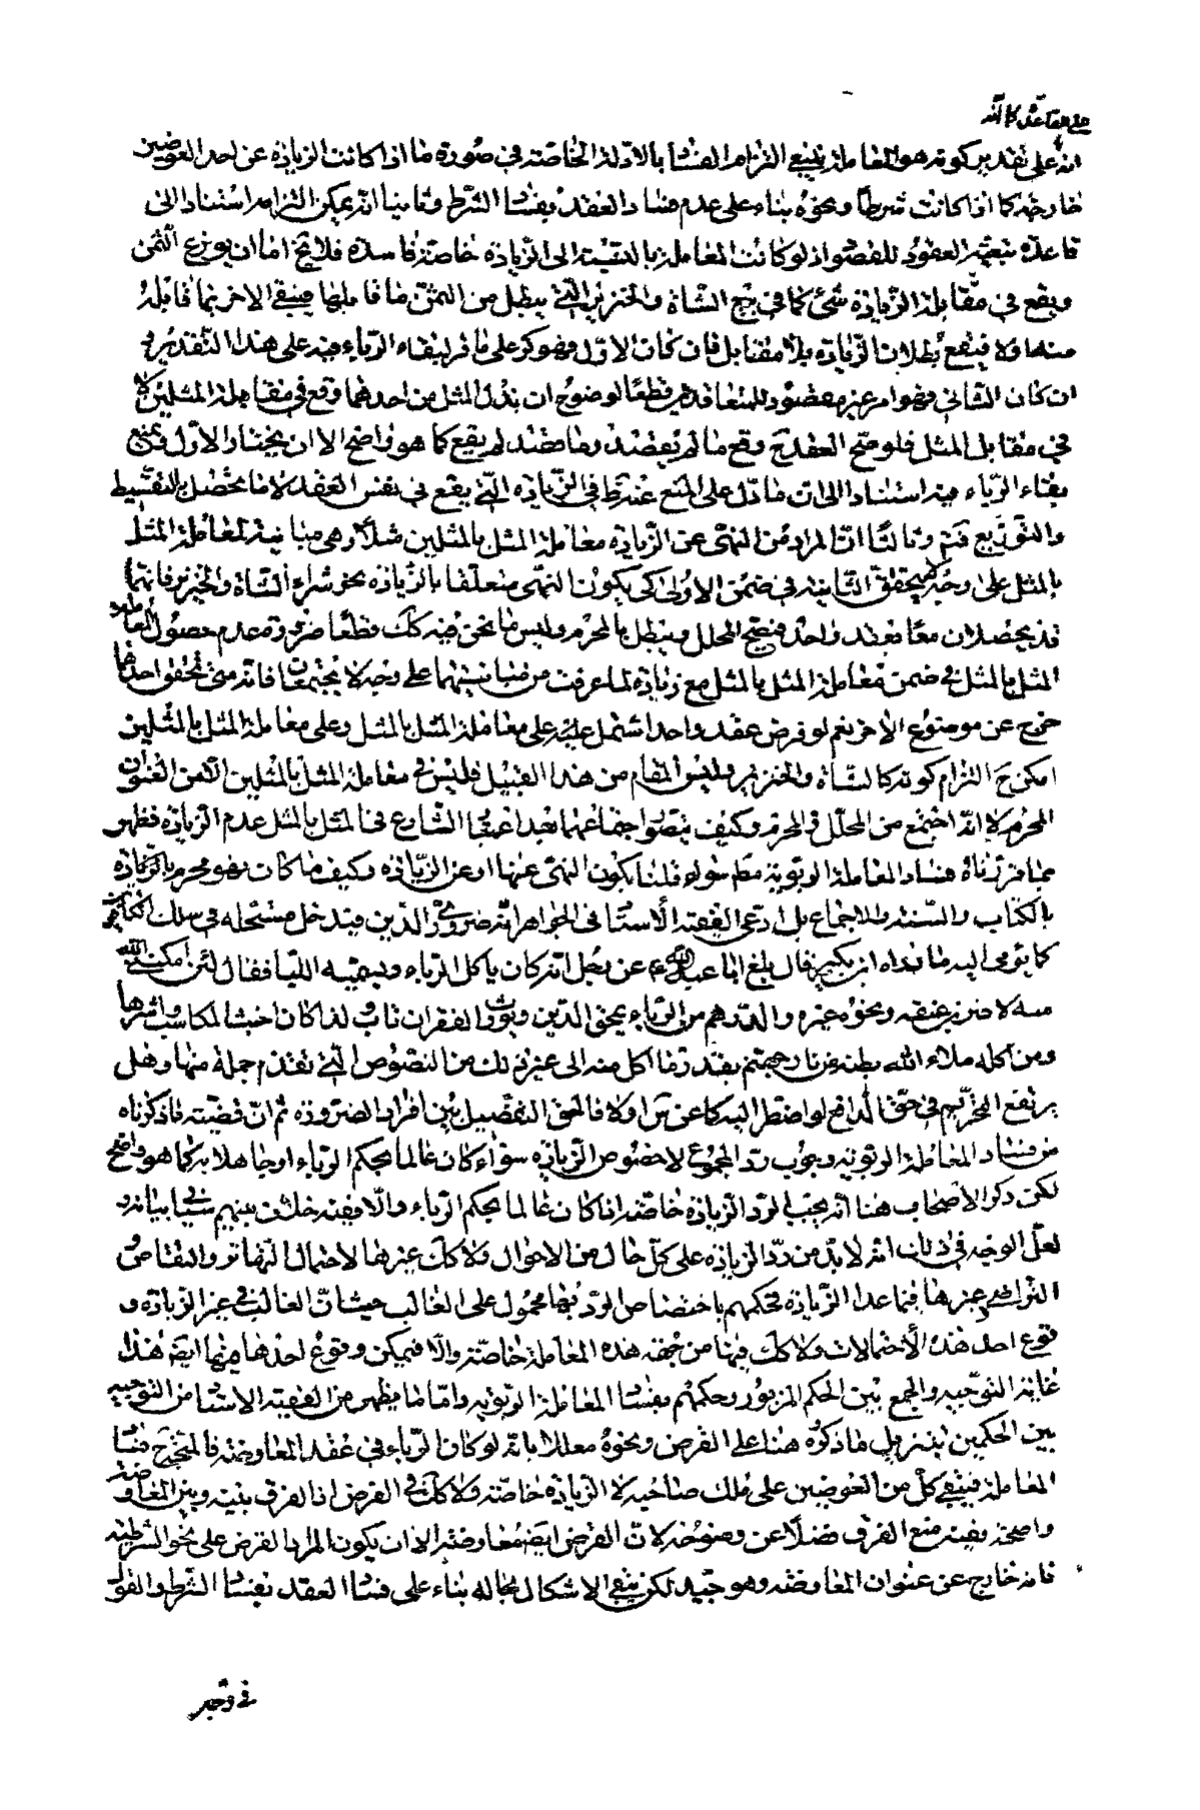 على القاعدة كما انه
انه على تقدير كونه هو المعاملة ينبغي التزام الفساد بالادلة الخاصة في صورة ما اذا كانت الزيادة عن احد العوضين
خارجة كما اذا كانت شرطا ونحوه بناء على عدم فساد العقد بفساد الشرط وثانيا انه يمكن التزامه استنادا الى
قاعدة تبعية العقود للقصود اذ لو كانت المعاملة بالنسبة الى الزيادة خاصة فاسدة فلا يخ اما ان يوزع الثمن
ويقع في مقابلة الزيادة شئ كما في بيع الشاة والخنزير التي يبطل من الثمن ما قابلها فيبقى الاخر بما قابله
منها ولا فيقع بطلان الزيادة بلا مقابل فان كان الاول فهو كر على ما فر لبقاء الرباء فيه على هذا التقدير و
ان كان الثاني فهو امر غير مقصود للمتعاقدين قطعا لوضوح ان بذل المثل من احدهما وقع في مقابلة المثلين لا
في مقابل المثل فلو صح العقد ح وقع ما لم يقصد وما قصد لم يقع كما هو واضح الا ان يختار الاول ويمنع
بقاء الرباء فيه استنادا الى ان ما دل على المنع عنه ظ في الزيادة التي يقع في نفس العقد لا ما يحصل بالتقسيط
والتوزيع فتم وثالثا ان المراد من النهى عن الزيادة معاملة المثل بالمثلين مثلا وهى مباينة لمعاملة المثل
بالمثل على وجه لا يتحقق الثانية في ضمن الاولى كى يكون النهى متعلقا بالزيادة نحو شراء الشاة والخنزير فانهما
قد يحصلان معا بعقد واحد فيصح المحلل ويبطل المحرم وليس ما نحن فيه كك قطعا ضرورة عدم حصول معاملة
المثل بالمثل في ضمن معاملة المثل بالمثل مع زيادة لما عرفت من مباينتهما على وجه لا يجتمعان فانه متى تحقق احدهما
خرج عن موضوع الاخر نعم لو فرض عقد واحد اشتمل عليه على معاملة المثل بالمثل وعلى معاملة المثل بالمثلين
امكن ح التزام كونه كالشاة والخنزير وليس المقام من هذا القبيل فليس في معاملة المثل بالمثلين الا من العنوان
المحرم لا انه اجتمع من المحلل والمحرم وكيف يتصور اجتماعهما بعد اعتبار الشارع في المثل بالمثل عدم الزيادة فظهر
مما قررناه فساد المعاملة الربوية مط سواء قلنا بكون النهى عنها او عن الزيادة وكيف ما كان فهو محرم بالزيادة
بالكتاب والسنة والاجماع بل ادعى الفقيه الاستاد في الجواهر انه ضرورى الدين فيدخل مستحله في سلك الكافرين
كما يومى اليه ما رواه ابن بكير قال بلغ ابا عبد الله ع عن رجل انه كان ياكل الرباء ويسميه اللبا فقال لئن امكننى الله
منه لاضربن عنقه ونحوه غيره والدرهم من الرباء يمحق الدين ويورث الفقر ان تاب ولذا كان اخبث المكاسب واشرها
ومن اكله ملاء الله بطنه من نار جهنم بقدر ما اكل منه الى غير ذلك من النصوص التي تقدم جملة منها وهل
يرتفع التحريم في حق الدافع لو اضطر اليه كما عن س او لا فالحق التفصيل بين افراد الضرورة ثم ان قضيته ما ذكرناه
من فساد المعاملة الربوية وجوب رد المجموع لا خصوص الزيادة سواء كان عالما بحكم الرباء او جاهلا به كما هو واضح
لكن ذكر الاصحاب هنا انه يجب الرد الزيادة خاصة اذا كان عالما بحكم الرباء والا ففيه خلاف بينهم سياتى بيانه و
لعل الوجه في ذلك انه لا بد من رد الزيادة على كل حال من الاحوال ولا كك غيرها لاحتمال التهاتر والتقاص و
التراضى غيرها فيما عدا الزيادة فحكمهم باختصاص الرد بها محمول على الغالب حيث ان الغالب في غير الزيادة و
قوع احد هذه الاحتمالات ولا كك فيها من جهة هذه المعاملة خاصة والا فيمكن وقوع احدها فيها ايضا هذا
غاية التوجيه والجمع بين الحكم المزبور وحكمهم بفساد المعاملة الربوية واما ما يظهر من الفقيه الاستاد من التوجيه
بين الحكمين بتنزيل ما ذكروه هنا على القرض ونحوه معللا بانه لو كان الرباء في عقد المعاوضة فالمتجه ح فساد
المعاملة فيبقى كل من العوضين على ملك صاحبه لا الزيادة خاصة ولا كك في القرض اذ الفرق بينه وبين المعاوضة
واضحة ففيه منع الفرق فضلا عن وضوحه لان القرض ايضا معاوضة الا ان يكون المراد القرض على نحو الشرطية
فانه خارج عن عنوان المعاوضة وهو جيد لكن يبقى الاشكال بحاله بناء على فساد العقد بفساد الشرط والقول
في وجه